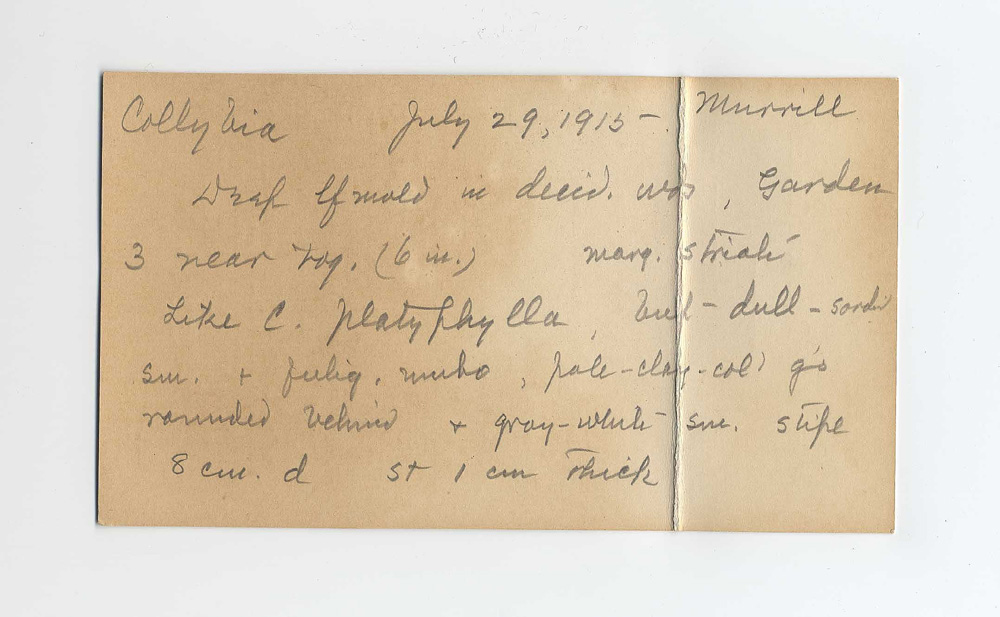 Collybia July 29, 1915 - Murrill
lf mold in decid. wds, Garden
3 near tog. (6 in.) marg. striate
Like C. platyphylla, but - dull -
sm. + fulig. umbo, pale-clay-col' g's
rounded behind + gray-white sm. stipe
8 cm. d st 1 cm thick